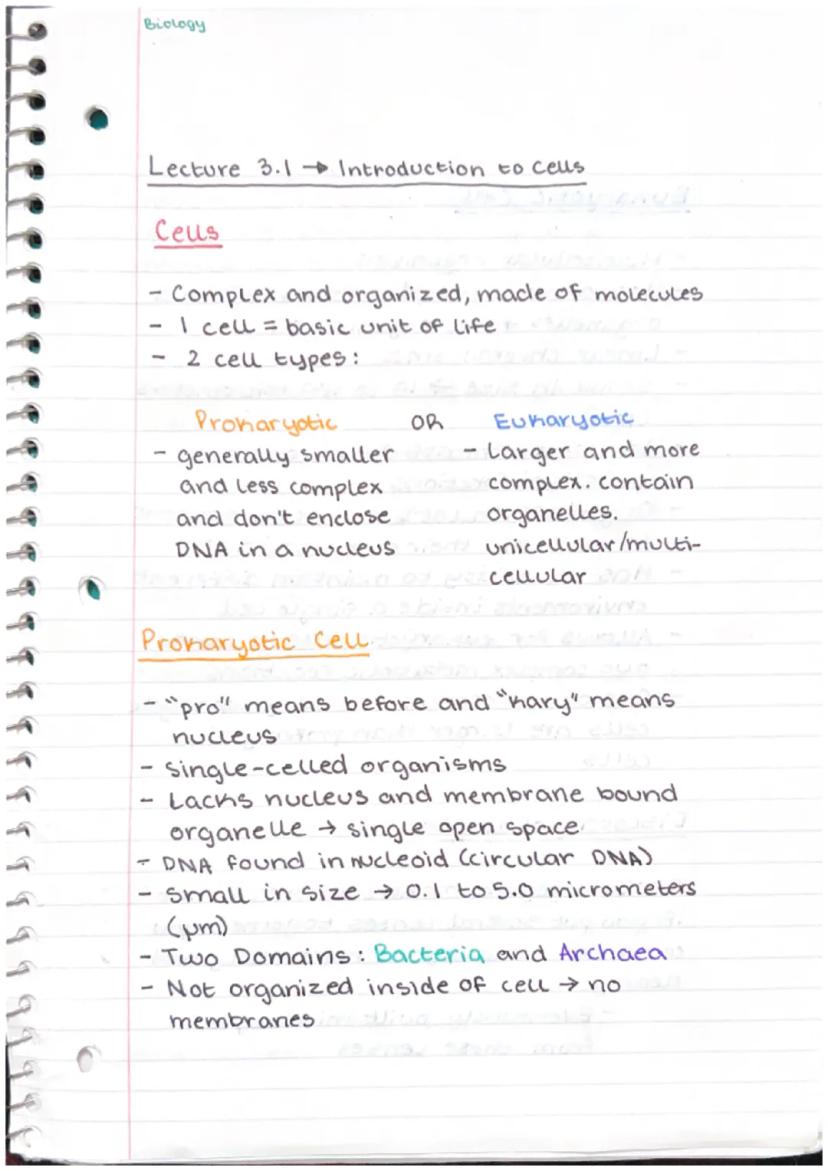 Biology
Lecture 3.1 → Introduction to Cells
Cells
- Complex and organized, made of molecules
- 1 cell = basic unit of life
- 2 cell types:
Prokaryotic OR Eukaryotic
- generally smaller
and less complex
and don't enclose
DNA in a nucleus
- Larger and more
complex. contain
organelles.
unicellular/multi-
cellular
Prokaryotic Cell
- "pro" means before and "kary" means
nucleus
- Single-celled organisms
- Lacks nucleus and membrane bound
organelle → single open space
- DNA found in nucleoid (circular DNA)
- Small in size → 0.1 to 5.0 micrometers
(μm)
- Two Domains: Bacteria and Archaea
- Not organized inside of cell → no
membranes